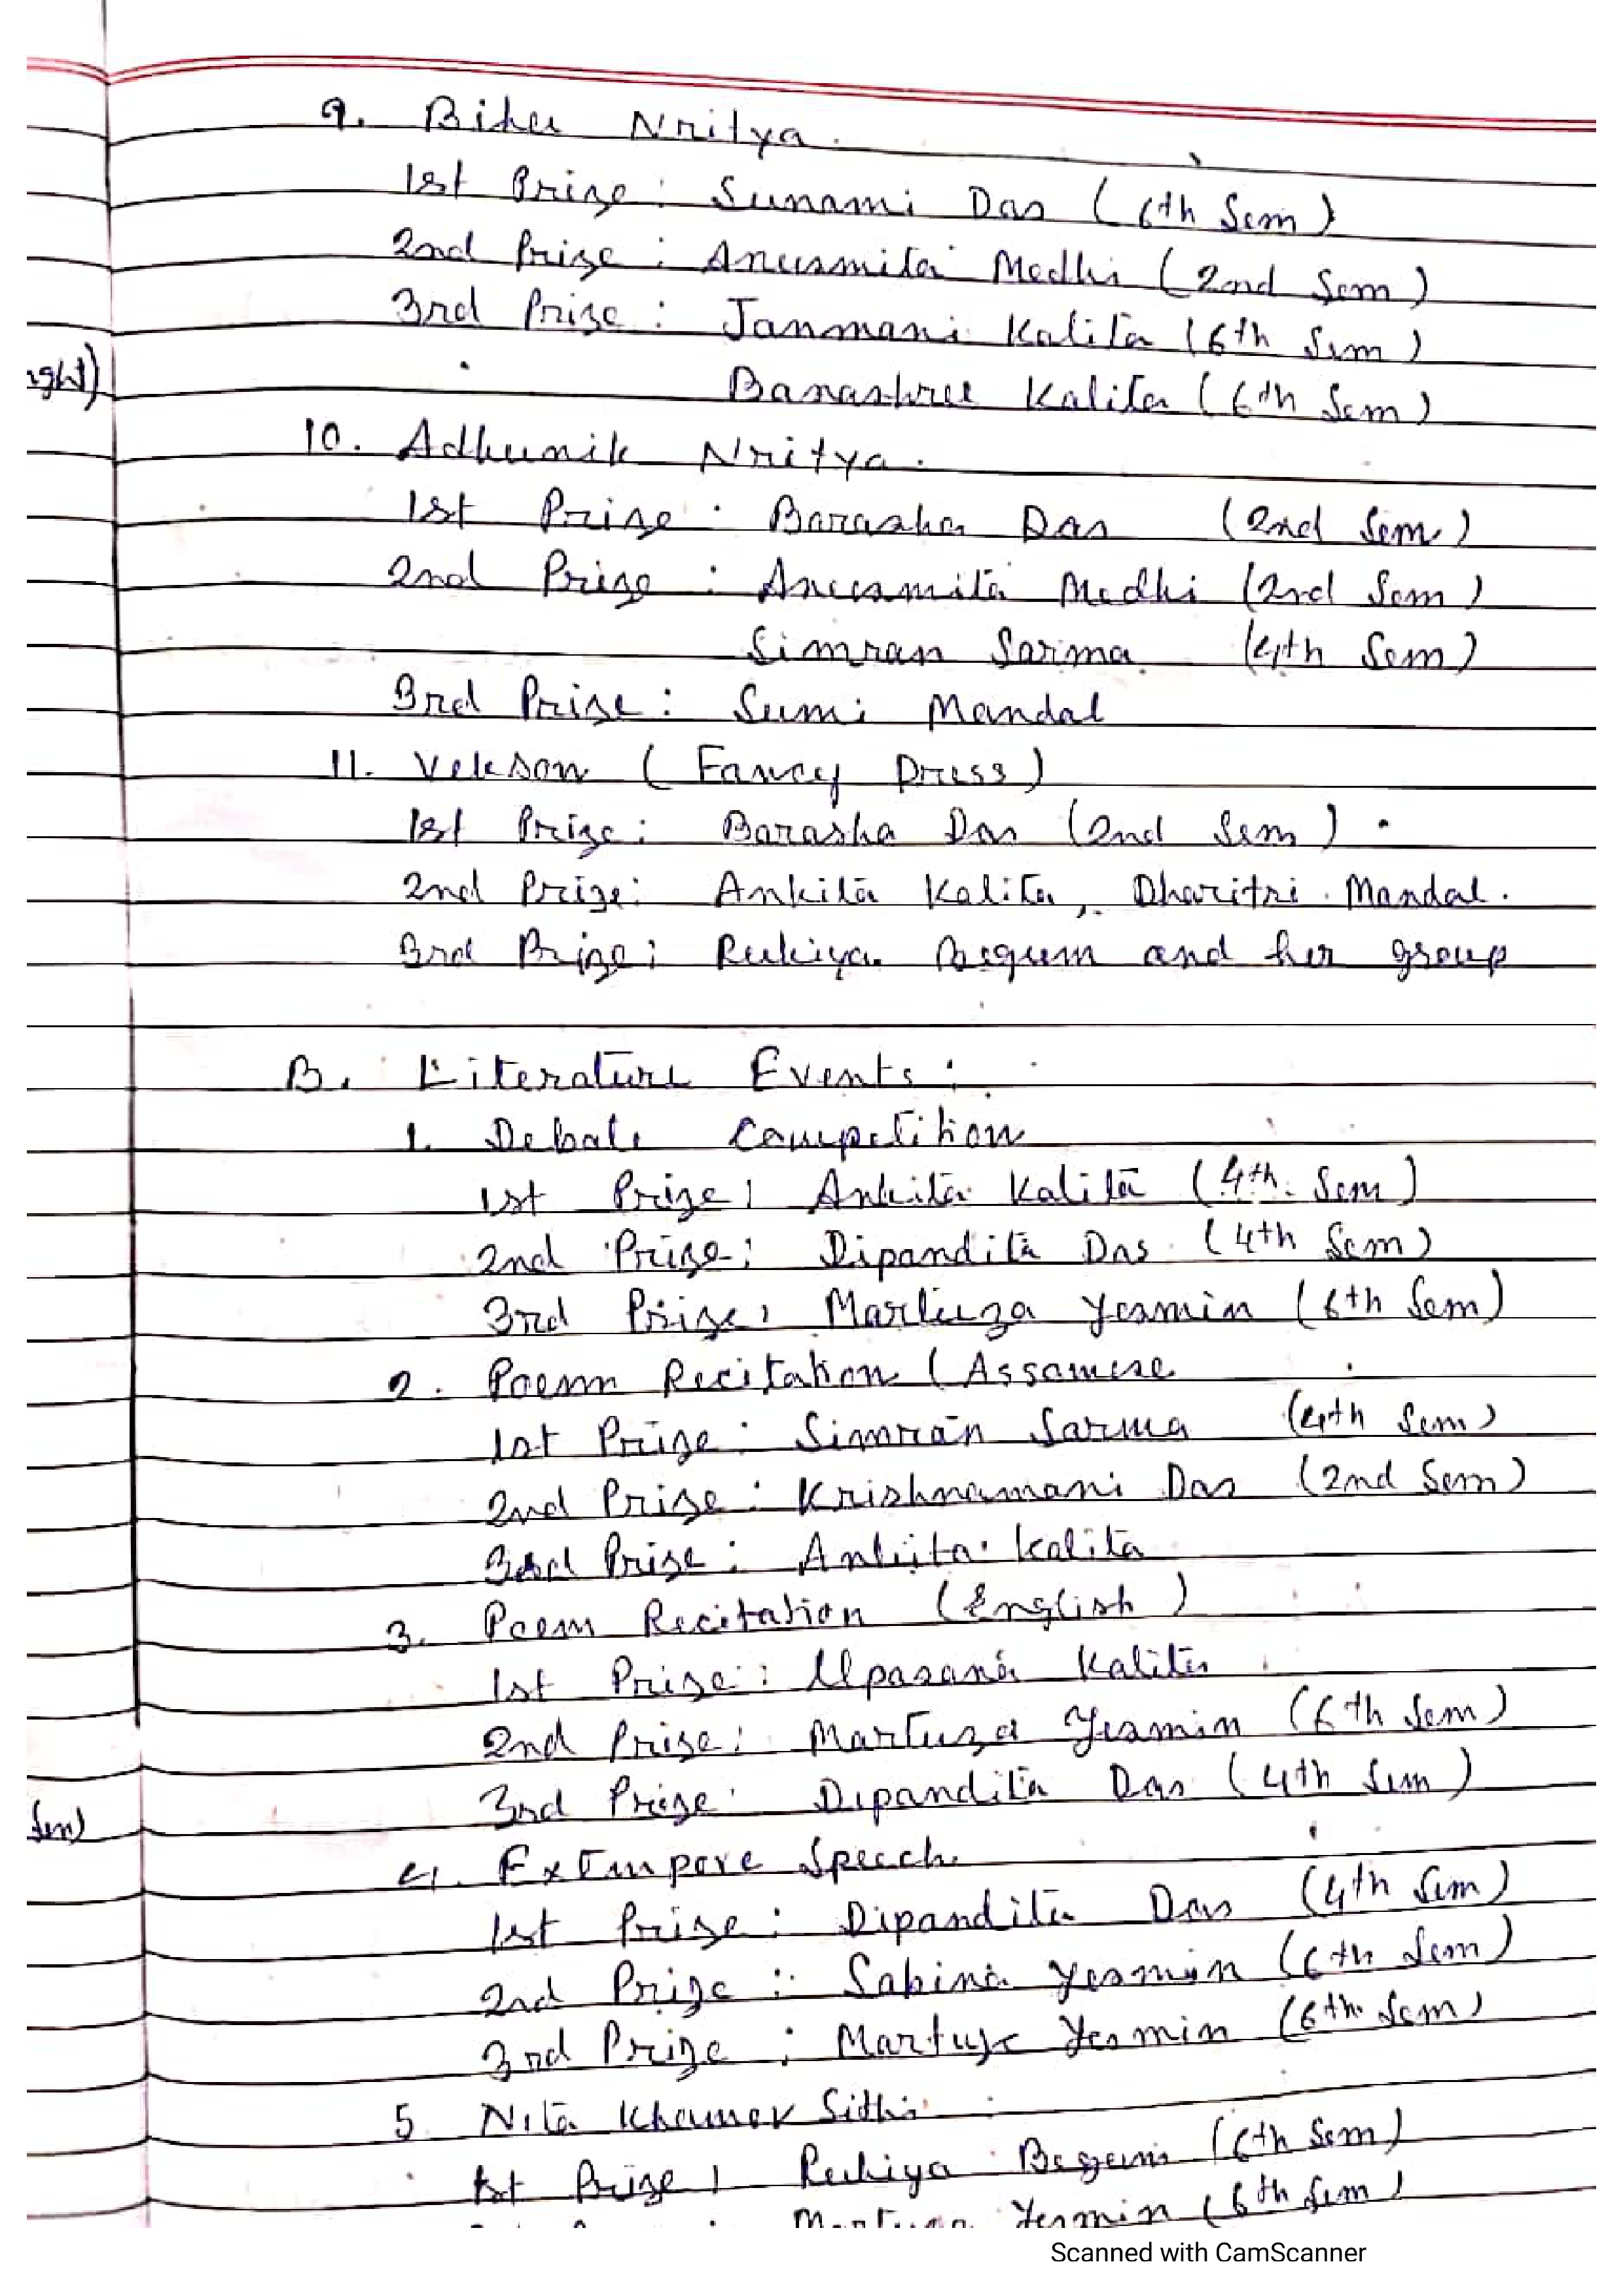 ight)
9. Bihu Nritya.
1st Prize : Sunami Das (6th Sem)
2nd Prize : Anusmita Medhi (2nd Sem)
3rd Prize : Janmani Kalita (6th Sem)
Banashree Kalita (6th Sem)
10. Adhunik Nritya.
1st Prize : Barasha Das (2nd Sem)
2nd Prize : Anusmita Medhi (2nd Sem)
Simran Sarma (4th Sem)
3rd Prize : Sumi Mandal
11. Vekson (Fancy Dress)
1st Prize : Barasha Das (2nd Sem).
2nd Prize : Ankita Kalita, Dharitri Mandal.
3rd Prize : Rukiya Begum and her group
B. Literature Events :
1. Debate Competition
1st Prize : Ankita Kalita (4th Sem)
2nd Prize : Dipandita Das (4th Sem)
3rd Prize : Martuza Yesmin (6th Sem)
2. Poem Recitation (Assamese
1st Prize : Simran Sarma (4th Sem)
2nd Prize : Krishnamani Das (2nd Sem)
3rd Prize : Ankita Kalita
3. Poem Recitation (English)
1st Prize : Upasana Kalita
2nd Prize : Martuza Yesmin (6th Sem)
3rd Prize : Dipandita Das (4th Sem)
Sem)
4. Extempore Speech
1st Prize : Dipandita Das (4th Sem)
2nd Prize : Sabina Yesmin (6th Sem)
3rd Prize : Martuza Yesmin (6th Sem)
5 Nita Sithi
1st Prize : Rukiya Begum (6th Sem)
Martuza Yesmin (6th Sem)
Scanned with CamScanner